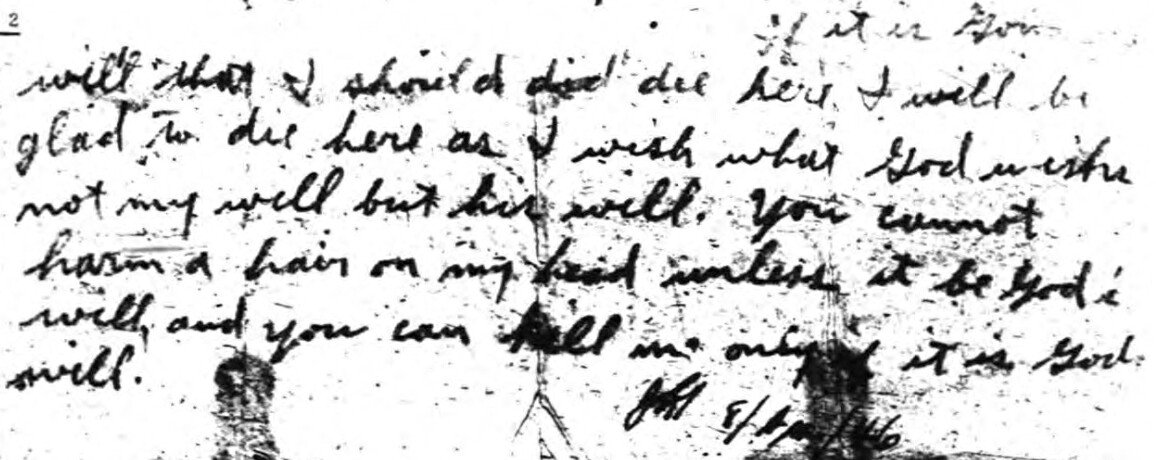 2
if it is God
will that I should did die here I will be
glad to die here as I wish what God wishes
not my will but his will. You cannot
harm a hair on my head unless it be God's
will, and you can kill me only if it is God
will.
8/Apr/46